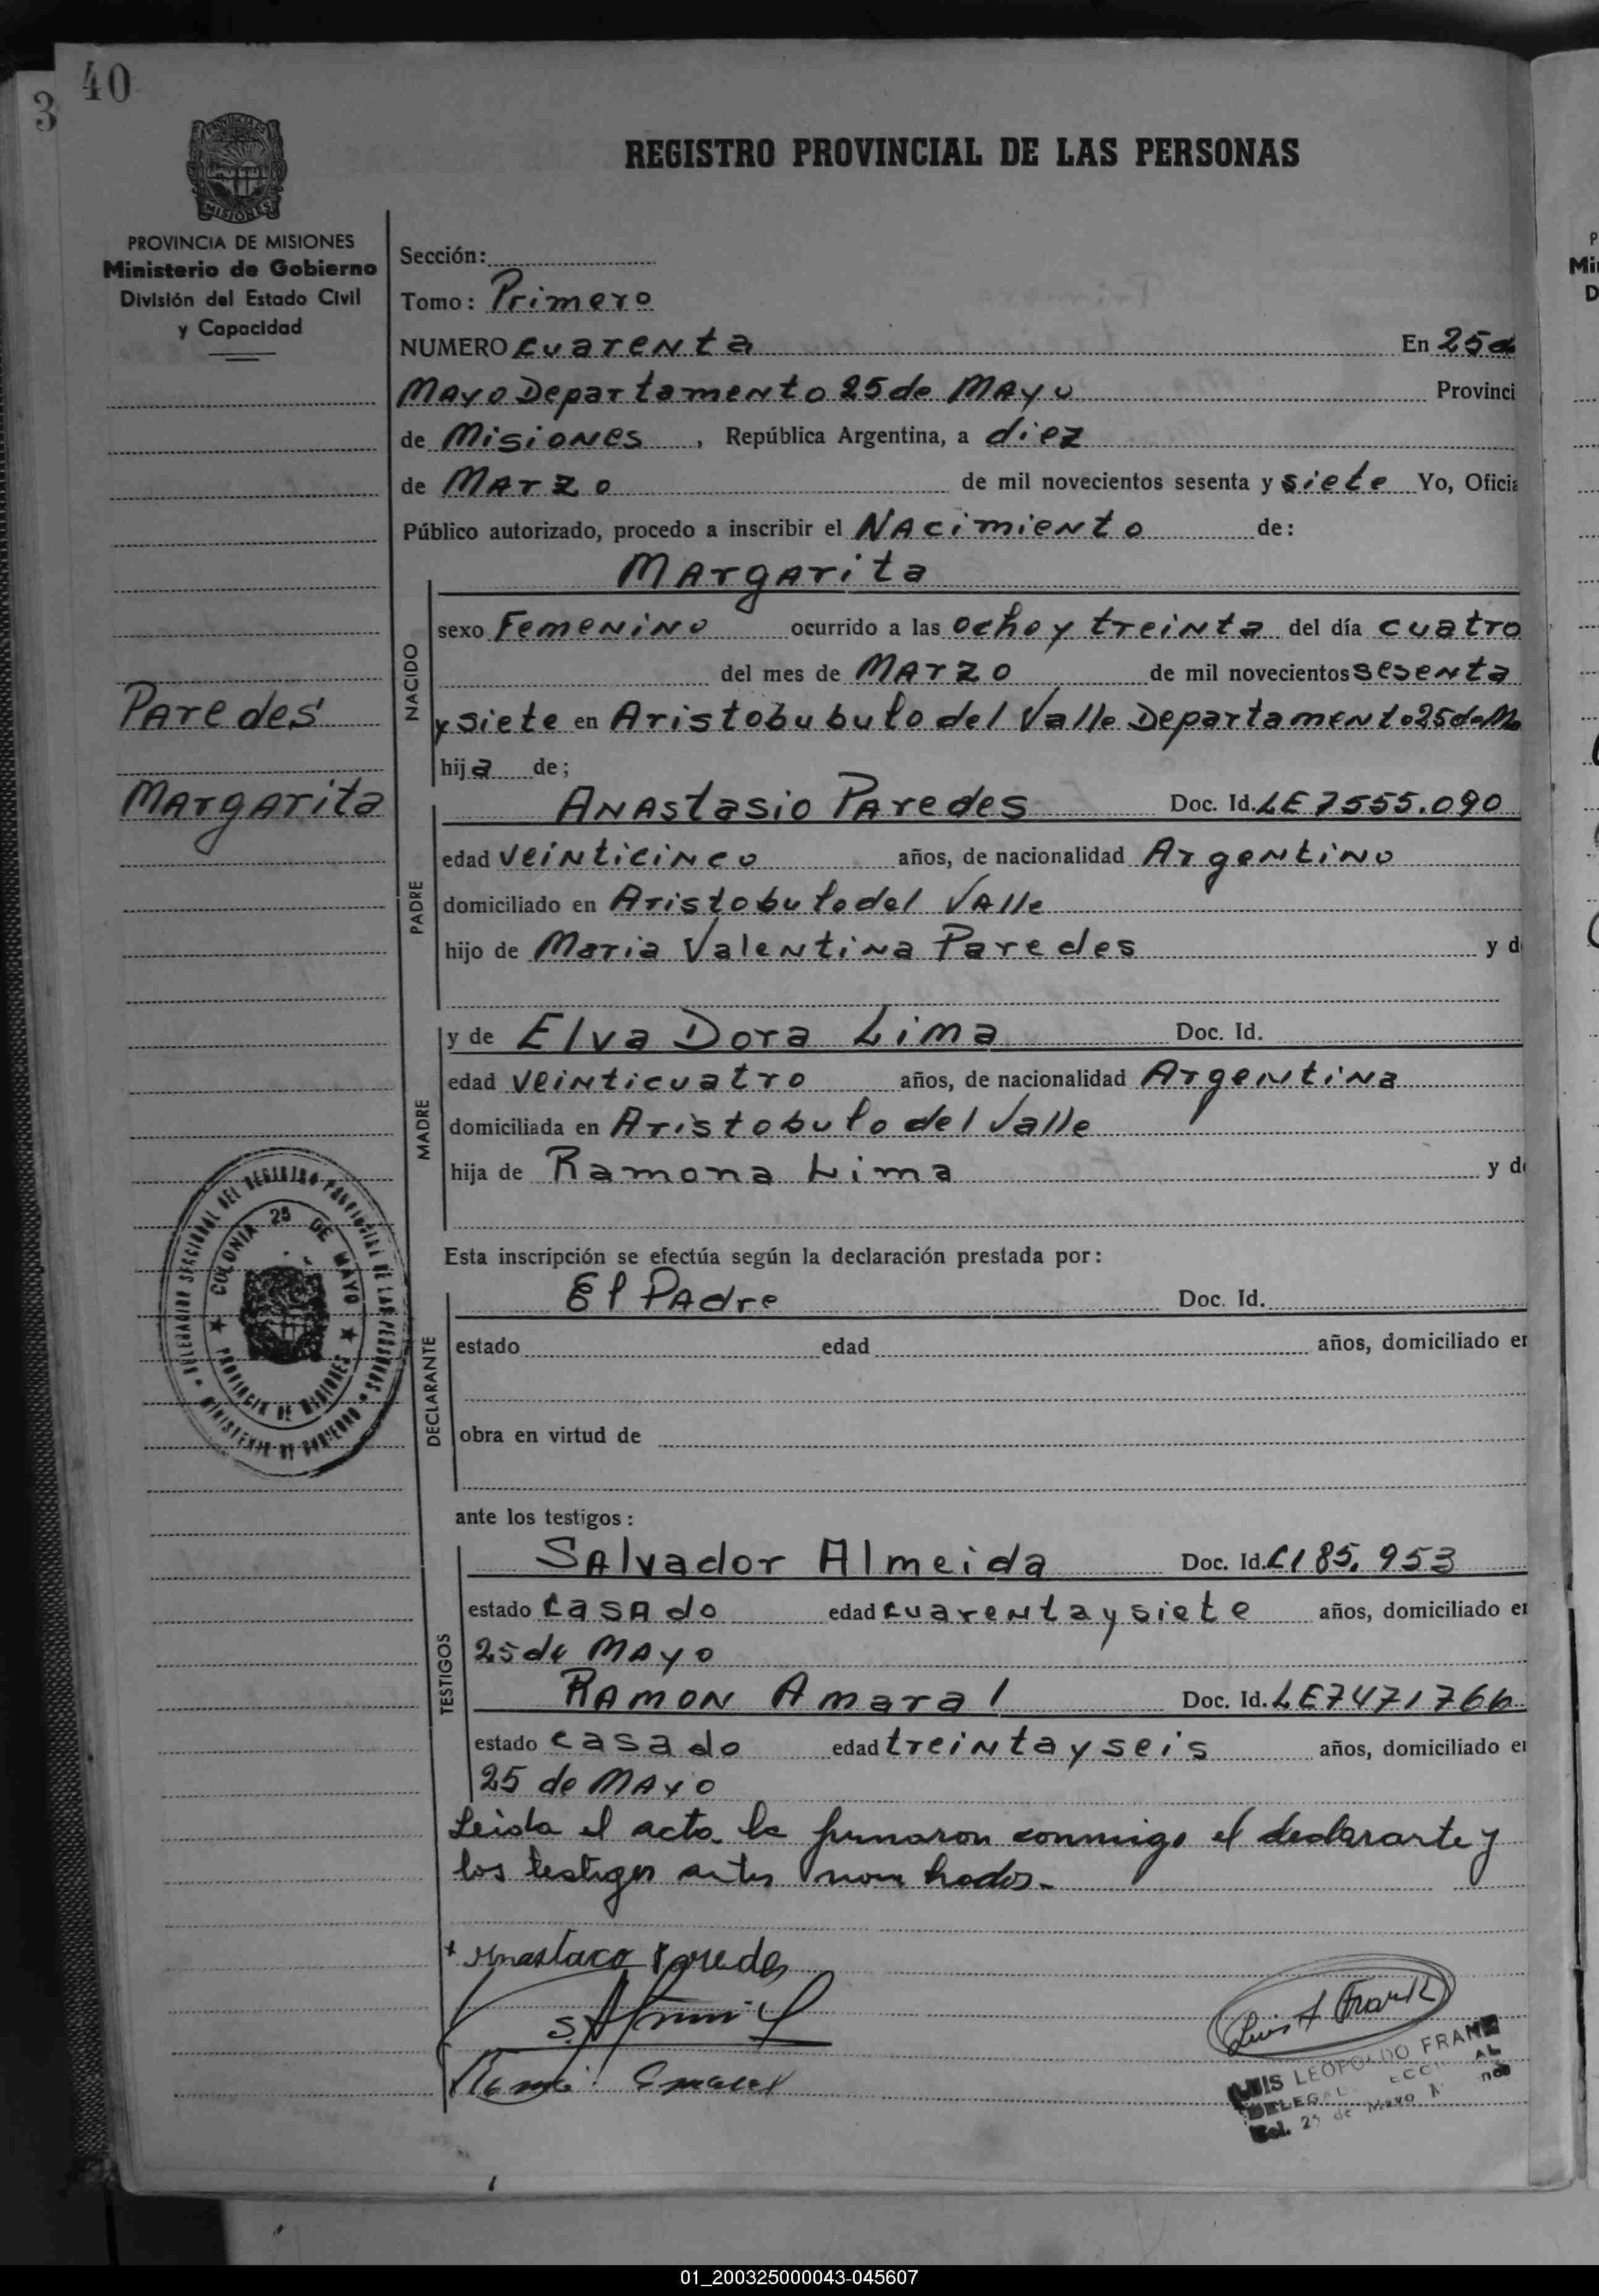 40
3
REGISTRO PROVINCIAL DE LAS PERSONAS
MISIONES
PROVINCIA DE MISIONES
Ministerio de Gobierno
División del Estado Civil
y Capacidad
Sección:
Tomo: Primero
NUMERO cuarenta En 25 de
Mayo Departamento 25 de Mayo Provinci
de Misiones, República Argentina, a diez
de Marzo de mil novecientos sesenta y siete Yo, Oficia
Público autorizado, procedo a inscribir el Nacimiento de:
Margarita
NACIDO
sexo Femenino ocurrido a las ocho y treinta del día cuatro
del mes de Marzo de mil novecientos sesenta
y siete en Aristobubulo del Valle Departamento 25 de Ma
hija de;
Paredes
Margarita
PADRE
Anastasio Paredes Doc. Id. LE 7555.090
edad veinticinco años, de nacionalidad Argentino
domiciliado en Aristobulo del Valle
hijo de Maria Valentina Paredes y d
MADRE
y de Elva Dora Lima Doc. Id.
edad veinticuatro años, de nacionalidad Argentina
domiciliada en Aristobulo del Valle
hija de Ramona Lima y d
DELEGACION SECCIONAL DEL REGISTRO PROVINCIAL DE LAS PERSONAS
MINISTERIO DE GOBIERNO
COLONIA 25 DE MAYO
PROVINCIA DE MISIONES
Esta inscripción se efectúa según la declaración prestada por:
DECLARANTE
El Padre Doc. Id.
estado edad años, domiciliado en
obra en virtud de
ante los testigos:
TESTIGOS
Salvador Almeida Doc. Id. C185.953
estado casado edad cuarenta y siete años, domiciliado en
25 de Mayo
Ramon Amaral Doc. Id. LE 7471766
estado casado edad treinta y seis años, domiciliado en
25 de Mayo
Leida el acta la firmaron conmigo el declarante y
los testigos antes nombrados.
Anastacio Paredes
Luis L Frank
LUIS LEOPOLDO FRANK
Del. 25 de Mayo
01_200325000043-045607